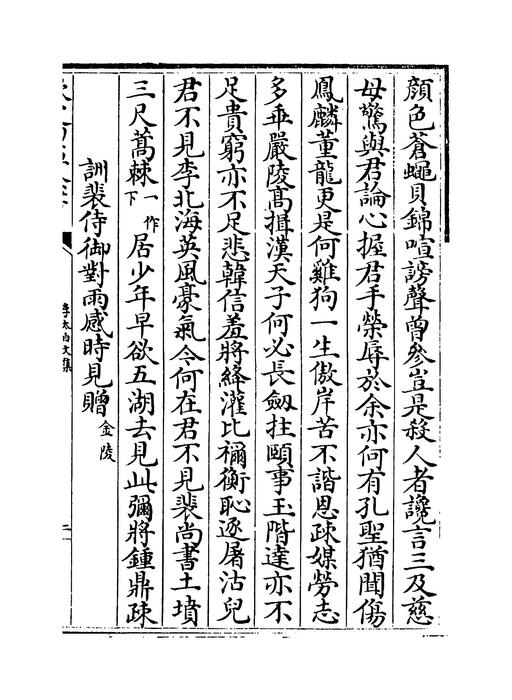 顔色蒼蠅貝錦喧謗聲曽參豈是殺人者讒言三及慈
母驚與君論心握君手榮辱於余亦何有孔聖猶聞傷
鳳麟董龍更是何雞狗一生傲岸苦不諧恩疎媒勞志
多乖嚴陵髙揖漢天子何必長劔拄頤事玉階達亦不
足貴窮亦不足悲韓信羞將絳灌比禰衡恥逐屠沽兒
君不見李北海英風豪氣今何在君不見裴尚書土墳
三尺蒿棘一作下居少年早欲五湖去見此彌將鍾鼎疎
訓裴侍御對雨感時見贈金陵
李太白文集